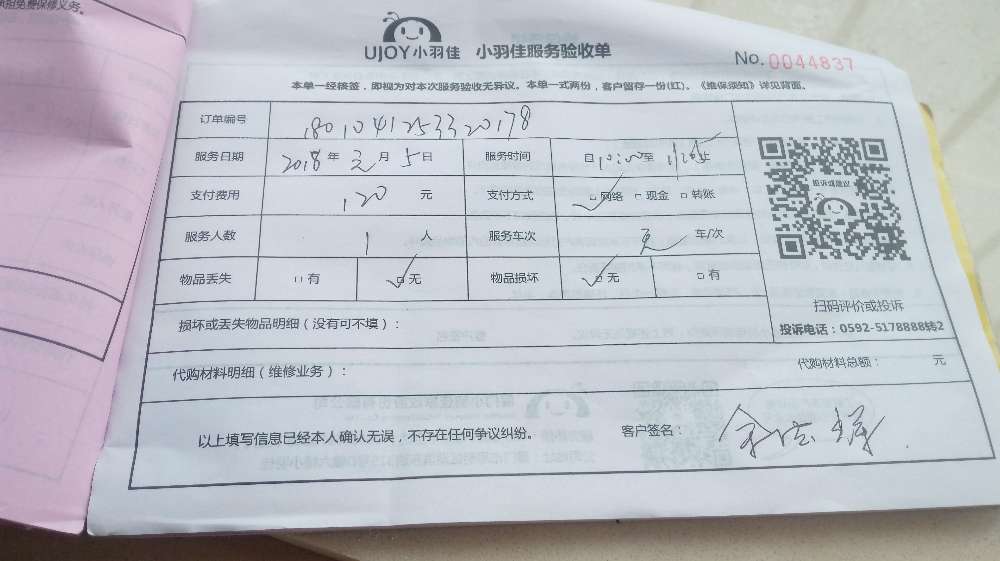 承担免费保修义务。
UJOY小羽佳 小羽佳服务验收单
No. 0044837
本单一经核签，即视为对本次服务验收无异议。本单一式两份，客户留存一份(红)。《维保须知》详见背面。
订单编号 1801041253320178
服务日期 2018 年 元 月 5 日 服务时间 自 10:00 至 止
支付费用 120 元 支付方式 网络 现金 转账
服务人数 1 人 服务车次 车/次
物品丢失 有 无 物品损坏 无 有
投诉或建议
扫码评价或投诉
投诉电话：0592-5178888转2
损坏或丢失物品明细（没有可不填）：
代购材料明细（维修业务）： 代购材料总额： 元
以上填写信息已经本人确认无误，不存在任何争议纠纷。 客户签名：